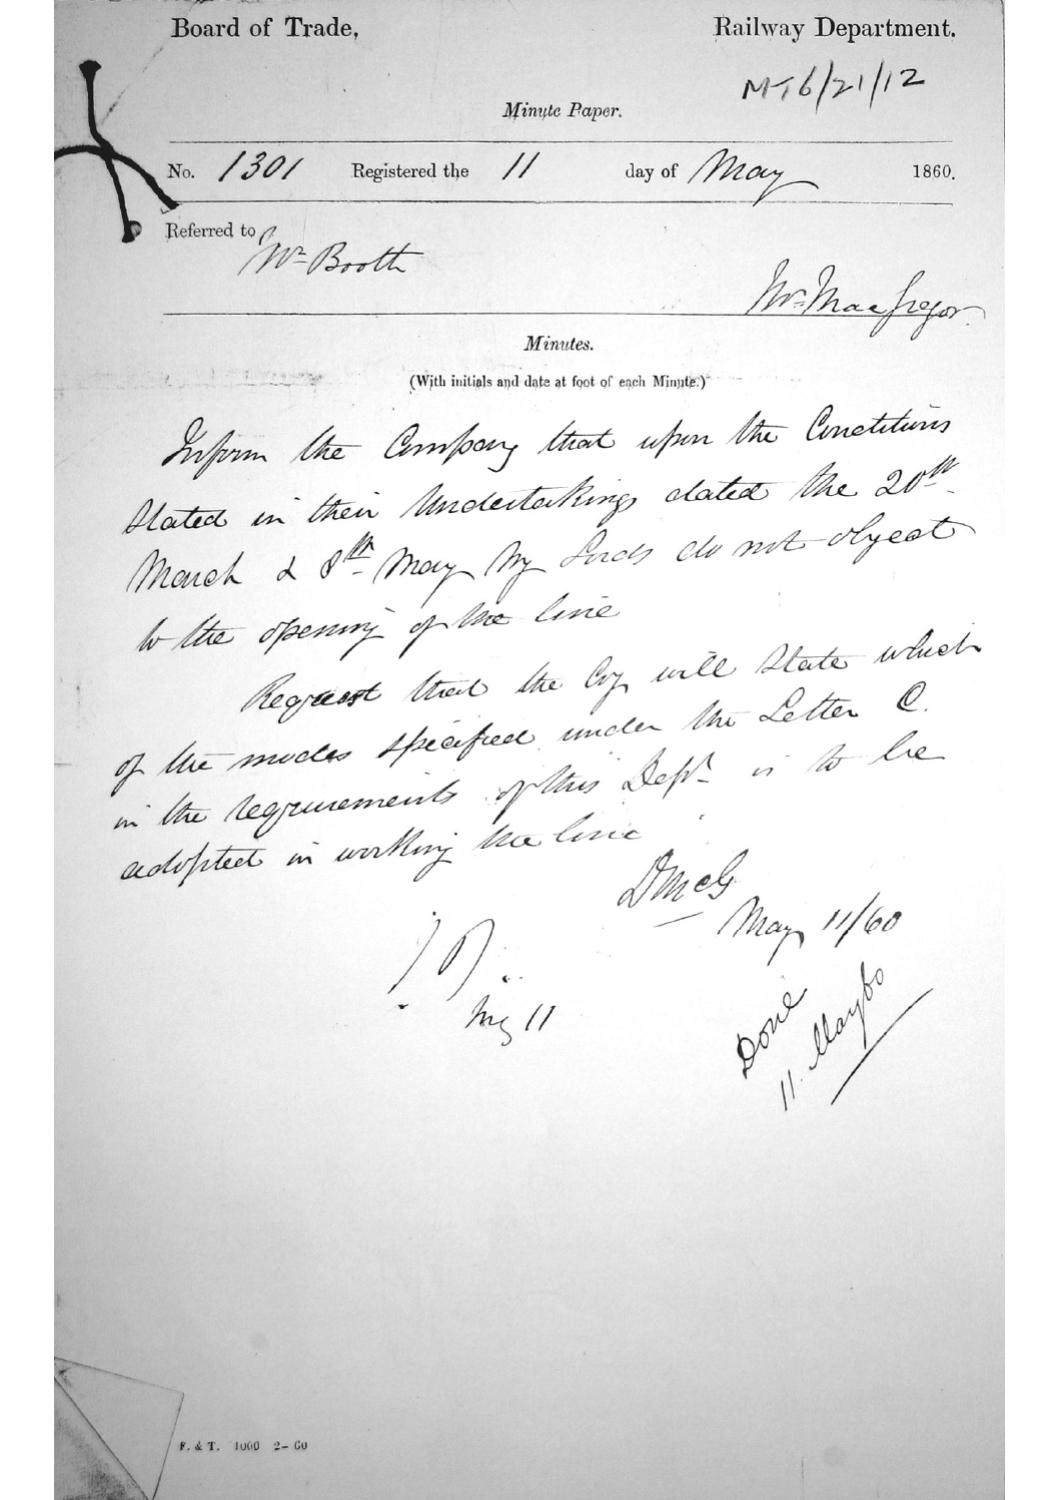 Board of Trade, Railway Department.
MT6/21/12
Minute Paper.
No. 1301 Registered the 11 day of May 1860.
Referred to
Mr Booth
Mr MacGregor.
Minutes.
(With initials and date at foot of each Minute.)
Inform the Company that upon the Conditions
stated in their Undertakings dated the 20th
March & 8th May My Lords do not object
to the opening of the line
Request that the Coy will state which
of the modes specified under the Letter C.
in the requirements of this Dept is to be
adopted in working the line
DMcG
May 11/60
My 11
Done
11 May 60
F. & T. 1000 2-60